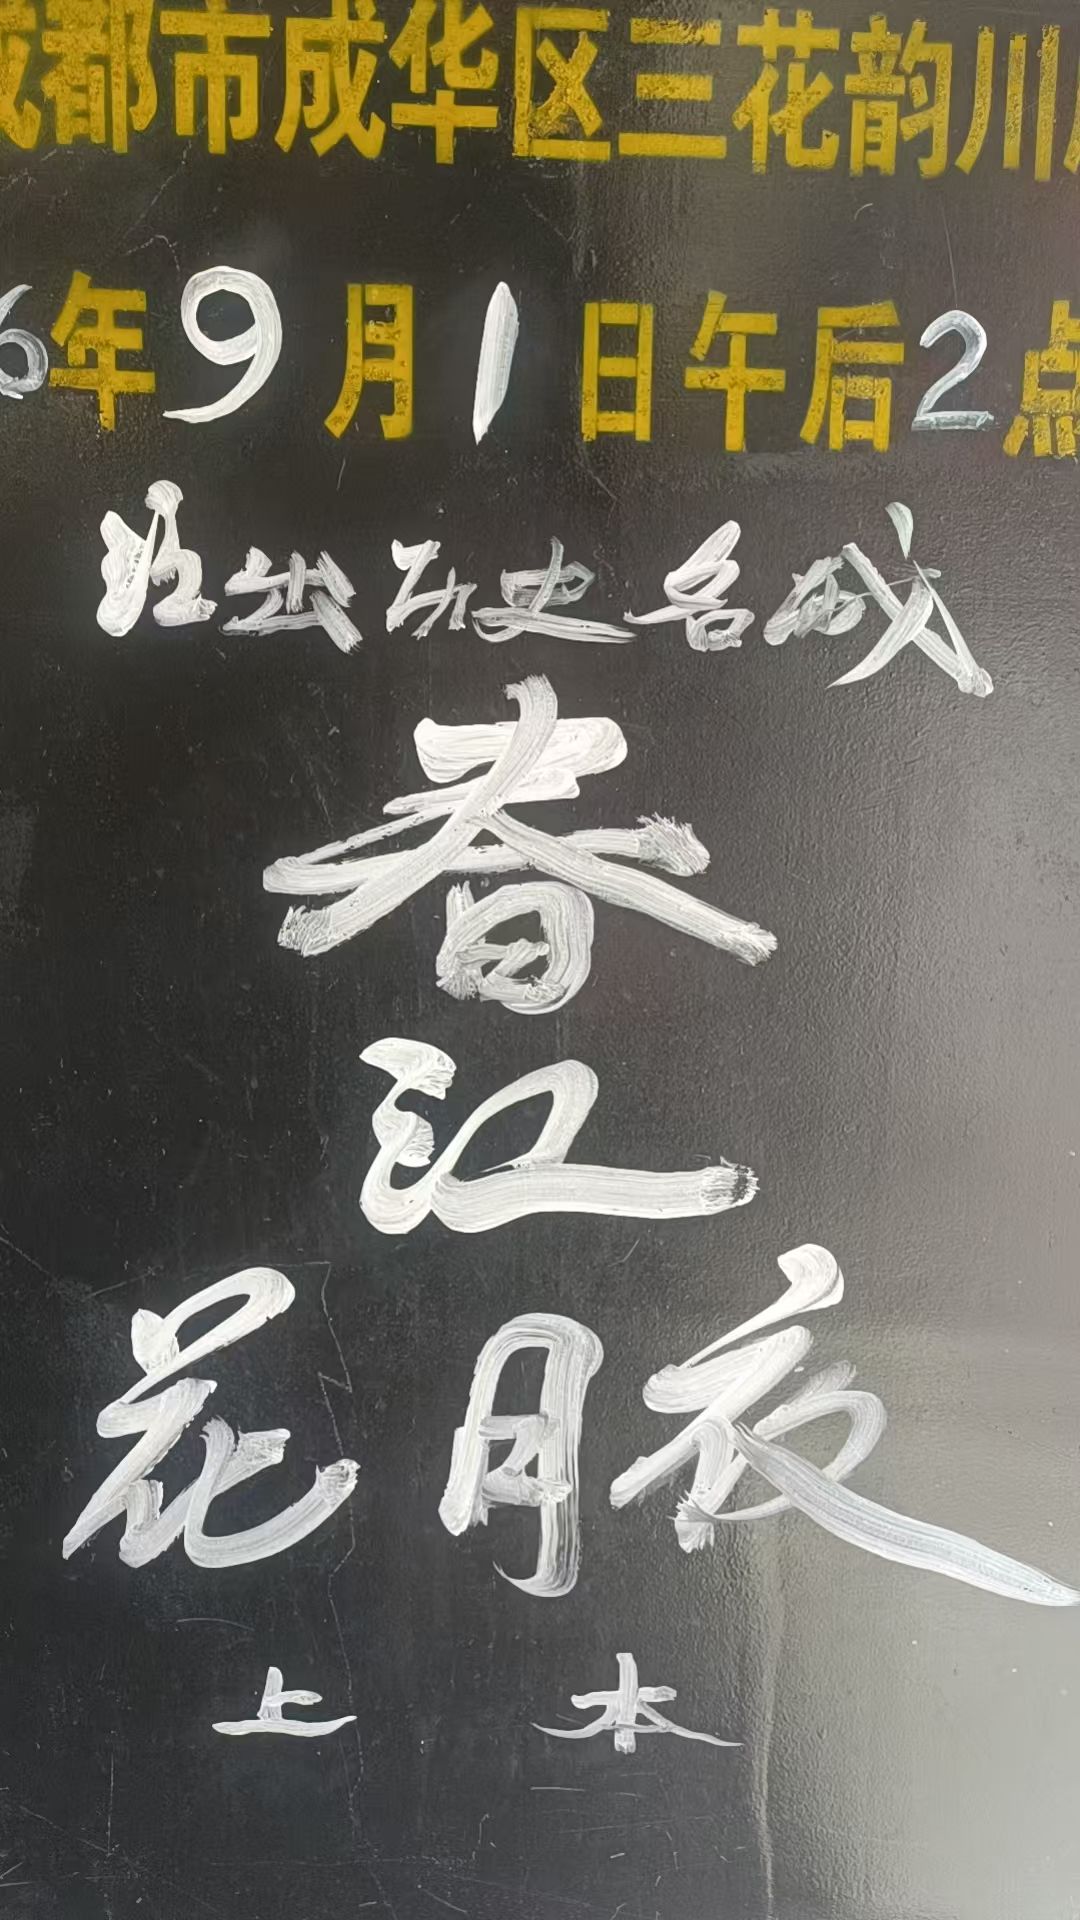 成都市成华区三花韵川
6年9月1日午后2点
演出历史名城
春
江
花月夜
上本